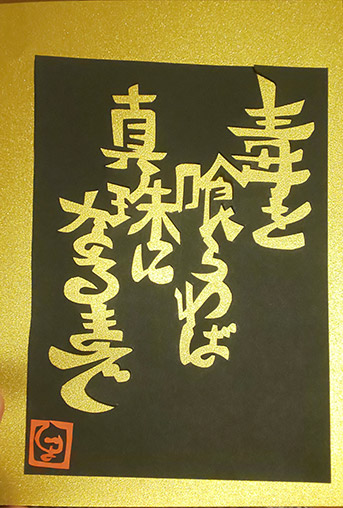 毒を
喰らわば
真珠に
なるまで